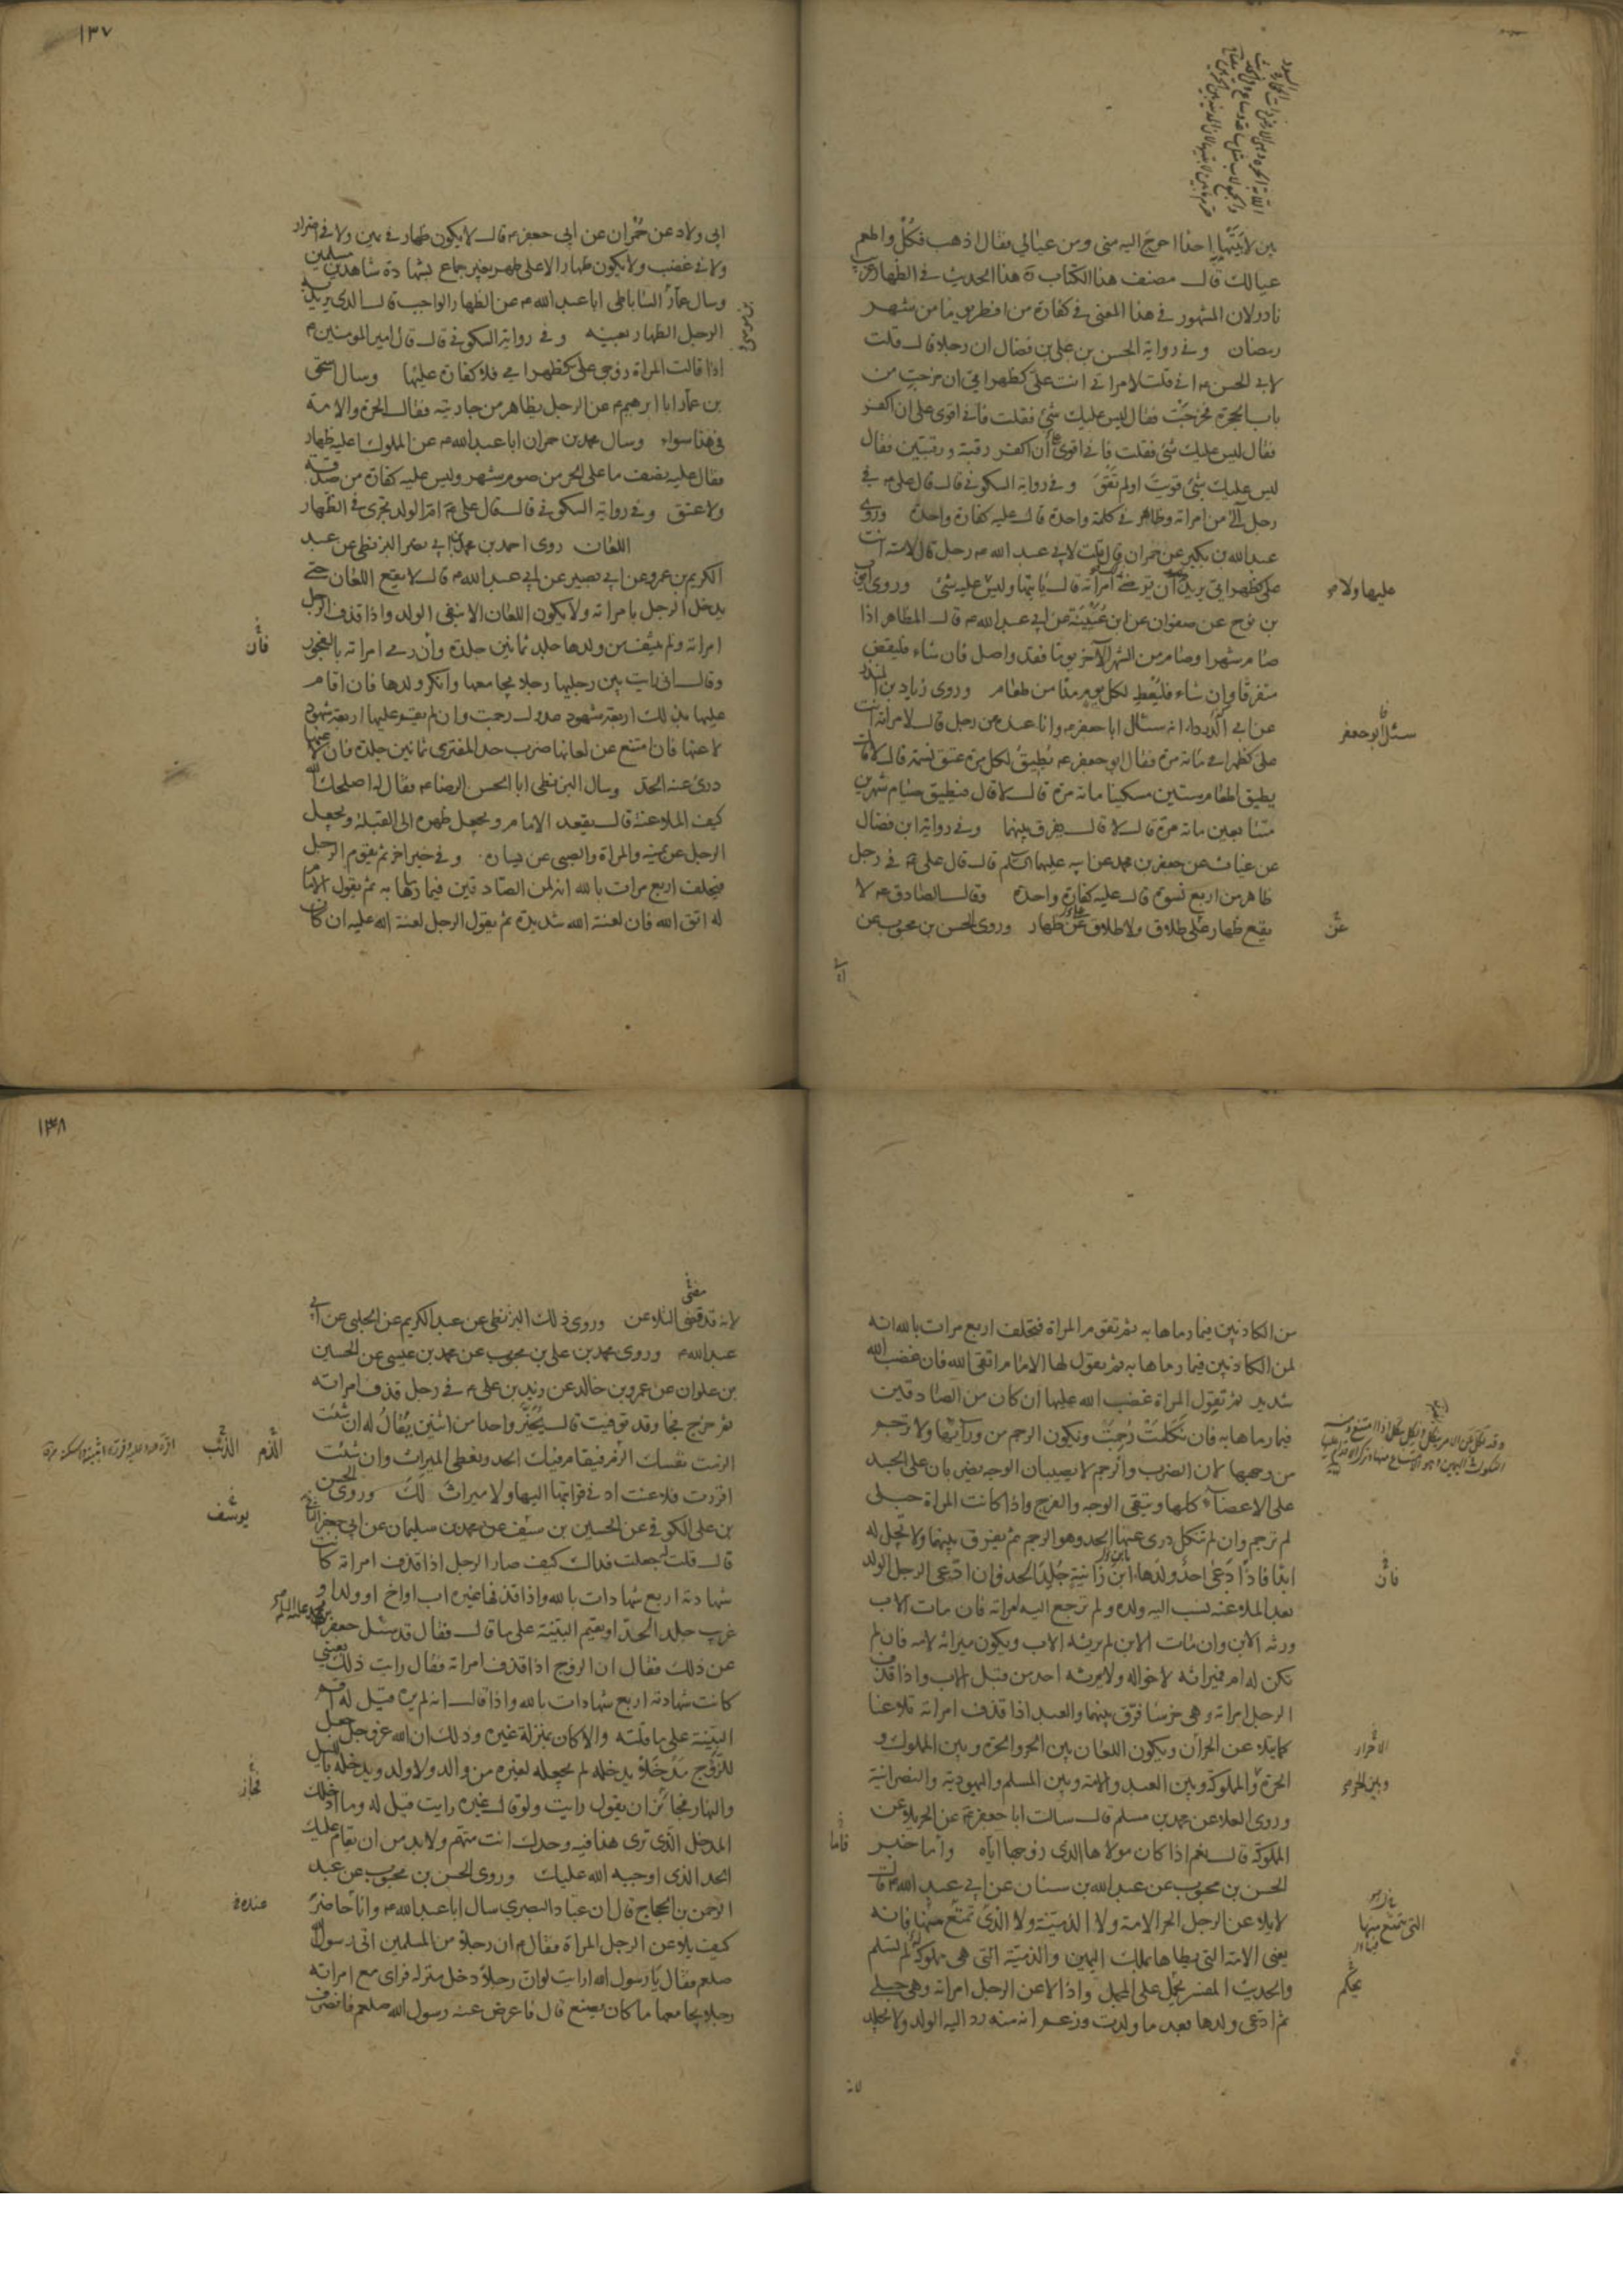 بين لابتيها احدا احوج اليه مني ومن عيالي فقال اذهب فكل واطعم
عيالك قال مصنف هذا الكتاب ره هذا الحديث في الظهار غريب
نادر لان المشهور في هذا المعنى في كفارة من افطر يوما من شهر
رمضان وفي رواية الحسن بن علي بن فضال ان رجلا قال قلت
لابي الحسن ع اني قلت لامراتي انت علي كظهر امي ان خرجت من
باب الحجرة فخرجت فقال ليس عليك شئ فقلت فاني اقوى على ان اكفر
فقال ليس عليك شئ فقلت فاني اقوى ان اكفر رقبة ورقبتين فقال
ليس عليك شئ قويت اولم تقو وفي رواية السكوني قال قال علي ع في
رجل آلى من امراته وظاهر في كلمة واحدة قال عليه كفارة واحدة وروى
عبد الله بن بكير عن حمران قال قلت لابي عبد الله ع رجل قال لامته انت
علي كظهر امي يريد ان ترضى امراته قال ياتيها وليس عليه شئ وروى ايوب
عليها ولا
بن نوح عن صفوان عن ابن عيينة عن ابي عبد الله ع قال المظاهر اذا
صام شهرا وصام من الشهر الآخر يوما فقد واصل فان شاء فليقض
متفرقا وان شاء فليعط لكل يوم مدا من طعام وروى زياد بن المنذر
عن ابي الدرداء انه سئل ابا جعفر ع وانا عنده عن رجل قال لامراته انت
سئل ابو جعفر
علي كظهر امي مائة مرة فقال ابو جعفر ع يطيق لكل مرة عتق نسمة قال لا قال
يطيق اطعام ستين مسكينا مائة مرة قال لا قال فيطيق صيام شهرين
متتابعين مائة مرة قال لا قال يفرق بينهما وفي رواية ابن فضال
عن غياث عن جعفر بن محمد عن ابيه عليهما السلم قال قال علي ع في رجل
ظاهر من اربع نسوة قال عليه كفارة واحدة وقال الصادق ع لا
يقع ظهار على طلاق ولا طلاق على ظهار وروى الحسن بن محبوب عن
عن
١٣٧
ابي ولاد عن حمران عن ابي جعفر ع قال لا يكون ظهار في يمين ولا في اضرار
ولا في غضب ولا يكون ظهار الا على طهر بغير جماع بشهادة شاهدين مسلمين
وسال عمار الساباطي ابا عبد الله ع عن الظهار الواجب قال الذي يريد به
الرجل الظهار بعينه وفي رواية السكوني قال قال امير المومنين ع
اذا قالت المراة زوجي علي كظهر امي فلا كفارة عليها وسال اسحق
بن عمار ابا ابرهيم ع عن الرجل يظاهر من جاريته فقال الحرة والامة
في هذا سواء وسال محمد بن حمران ابا عبد الله ع عن المملوك اعليه ظهار
فقال عليه نصف ما على الحر من صوم شهر وليس عليه كفارة من صدقة
ولا عتق وفي رواية السكوني قال قال علي ع ام الولد تجزي في الظهار
اللعان روى احمد بن محمد بن ابي نصر البزنطي عن عبد
الكريم بن عمرو عن ابي بصير عن ابي عبد الله ع قال لا يقع اللعان حتى
يدخل الرجل بامراته ولا يكون اللعان الا بنفي الولد واذا قذف الرجل
امراته ولم ينتف من ولدها جلد ثمانين جلدة وان رمى امراته بالفجور
فان
وقال اني رايت بين رجليها رجلا يجامعها وانكر ولدها فان اقام
عليها بذلك اربعة شهود عدول رجمت وان لم يقم عليها اربعة شهود
لاعنها فان امتنع عن لعانها ضرب حد المفتري ثمانين جلدة فان لاعنها
درئ عنه الحد وسال البزنطي ابا الحسن الرضا ع فقال له اصلحك الله
كيف الملاعنة قال يقعد الامام ويجعل ظهره الى القبلة ويجعل
الرجل عن يمينه والمراة والصبي عن يساره وفي خبر اخر ثم يقوم الرجل
فيحلف اربع مرات بالله انه لمن الصادقين فيما رماها به ثم يقول الامام
له اتق الله فان لعنة الله شديدة ثم يقول الرجل لعنة الله عليه ان كان
من الكاذبين فيما رماها به ثم تقوم المراة فتحلف اربع مرات بالله انه
لمن الكاذبين فيما رماها به ثم يقول لها الامام اتقي الله فان غضب الله
شديد ثم تقول المراة غضب الله عليها ان كان من الصادقين
فيما رماها به فان نكلت رجمت ويكون الرجم من ورائها ولا ترجم
من وجهها لان الضرب والرجم لا يصيبان الوجه يضربان على الجسد
على الاعضاء كلها ويتقى الوجه والفرج واذا كانت المراة حبلى
لم ترجم وان لم تنكل درئ عنها الحد وهو الرجم ثم يفرق بينهما ولا تحل له
ابدا فاذا دعى احد ولدها ابن زانية جلد الحد وان ادعى الرجل الولد
فان
بعد الملاعنة نسب اليه ولده ولم ترجع اليه امراته فان مات الاب
ورثه الابن وان مات الابن لم يرثه الاب ويكون ميراثه لامه فان لم
تكن له ام فميراثه لاخواله ولا يرثه احد من قبل الاب واذا قذف
الرجل امراته وهي خرسا فرق بينهما والعبد اذا قذف امراته تلاعنا
كما يلاعن الحران ويكون اللعان بين الحر والحرة وبين المملوك و
الاحرار
الحرة والمملوكة وبين العبد والامة وبين المسلم واليهودية والنصرانية
وروى العلا عن محمد بن مسلم قال سالت ابا جعفر ع عن الحر يلاعن
المملوكة قال نعم اذا كان مولاها الذي زوجها اياه واما خبر
فاما
الحسن بن محبوب عن عبد الله بن سنان عن ابي عبد الله ع قال
لا يلاعن الرجل الحر الامة ولا الذمية ولا الذي تمتع منها فانه
التي يتمتع بها
يعني الامة التي يطاها بملك اليمين والذمية التي هي مملوكة لم تسلم
والحديث المفسر يحمل على المجمل واذا لاعن الرجل امراته وهي حبلى
يحكم
ثم ادعى ولدها بعد ما ولدت وزعم انه منه رد اليه الولد ولا يجلد
لانه
١٣٨
لانه قد قضى التلاعن وروى ذلك البزنطي عن عبد الكريم عن الحلبي عن ابي
عبد الله ع وروى محمد بن علي بن محبوب عن محمد بن عيسى عن الحسين
بن علوان عن عمرو بن خالد عن زيد بن علي ع في رجل قذف امراته
ثم خرج فجا وقد توفيت قال يخير واحدا من اثنين يقال له ان شئت
الزمت نفسك الذنب فيقام فيك الحد وتعطى الميراث وان شئت
الذنب
اقررت فلاعنت ادنى قرابتها اليها ولا ميراث لك وروى الحسن
بن علي الكوفي عن الحسين بن سيف عن محمد بن سليمان عن ابي جعفر الثاني
يوسف
قال قلت له جعلت فداك كيف صار الرجل اذا قذف امراته كانت
شهادته اربع شهادات بالله واذا قذفها غيره اب او اخ او ولد او
غريب جلد الحد او يقيم البينة على ما قال فقال قد سئل جعفر
عن ذلك فقال ان الزوج اذا قذف امراته فقال رايت ذلك بعيني
كانت شهادته اربع شهادات بالله واذا قال انه لم يره قيل له اقم
البينة على ما قلته والا كان بمنزلة غيره وذلك ان الله عز وجل جعل
للزوج مدخلا يدخله لم يجعله لغيره من والد ولا ولد ويدخله بالليل
والنهار فجائز ان يقول رايت ولو قال غيره رايت قيل له وما ادخلك
فجاز
المدخل الذي ترى هذا فيه وحدك انت متهم ولا بد من ان يقام عليك
الحد الذي اوجبه الله عليك وروى الحسن بن محبوب عن عبد
الرحمن بن الحجاج قال ان عباد البصري سال ابا عبد الله ع وانا حاضر
عنده
كيف يلاعن الرجل المراة فقال ع ان رجلا من المسلمين اتى رسول الله
صلعم فقال يا رسول الله ارايت لو ان رجلا دخل منزله فراى مع امراته
رجلا يجامعها ما كان يصنع قال فاعرض عنه رسول الله صلعم فانصرف